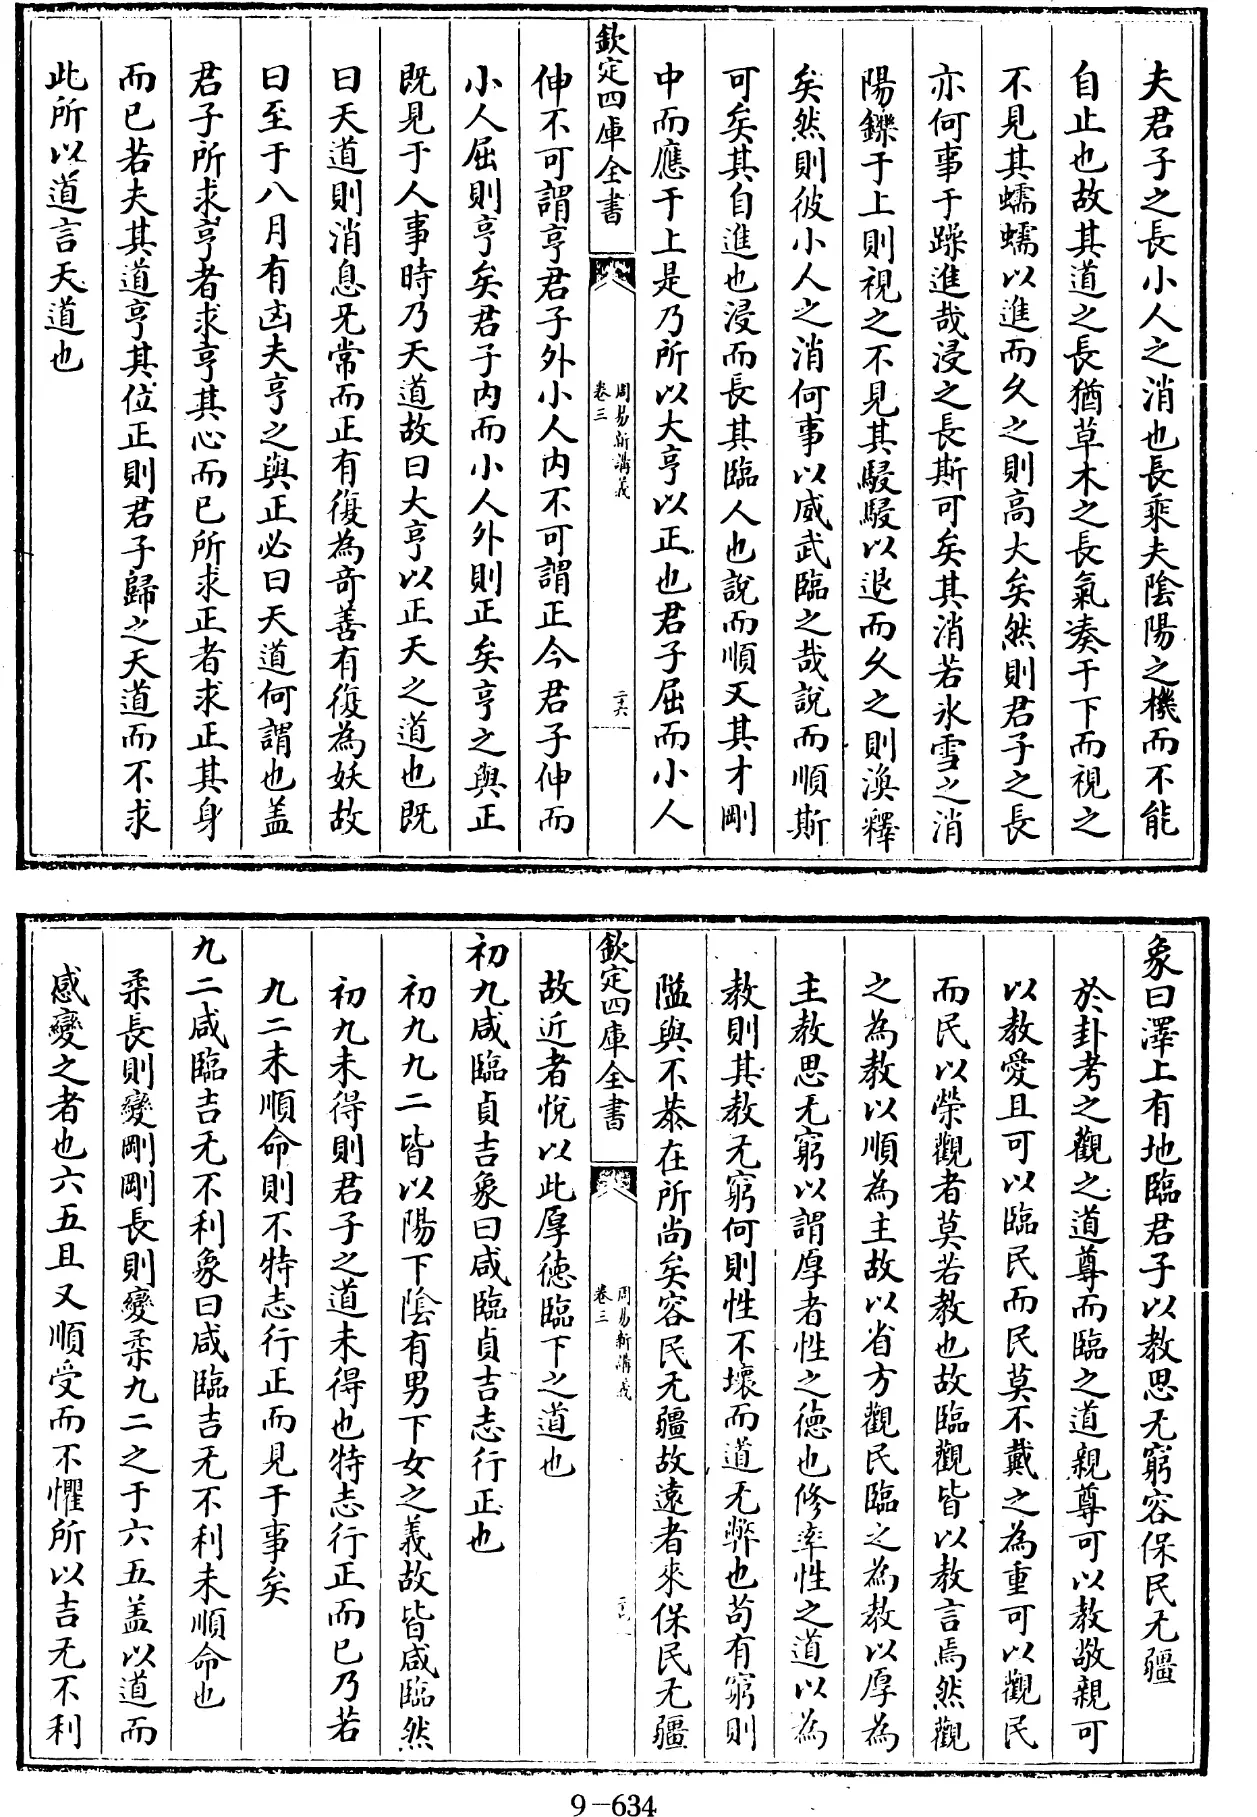 夫君子之長小人之消也長乘夫陰陽之機而不能
自止也故其道之長猶草木之長氣凑于下而視之
不見其蠕蠕以進而久之則高大矣然則君子之長
亦何事于躁進哉浸之長斯可矣其消若氷雪之消
陽鑠于上則視之不見其駸駸以退而久之則渙釋
矣然則彼小人之消何事以威武臨之哉說而順斯
可矣其自進也浸而長其臨人也說而順又其才剛
中而應于上是乃所以大亨以正也君子屈而小人
欽定四庫全書
周易新講義
卷三
二十六
伸不可謂亨君子外小人内不可謂正今君子伸而
小人屈則亨矣君子内而小人外則正矣亨之與正
既見于人事時乃天道故曰大亨以正天之道也既
曰天道則消息无常而正有復為竒善有復為妖故
曰至于八月有凶夫亨之與正必曰天道何謂也盖
君子所求亨者求亨其心而已所求正者求正其身
而已若夫其道亨其位正則君子歸之天道而不求
此所以道言天道也
象曰澤上有地臨君子以教思无窮容保民无疆
於卦考之觀之道尊而臨之道親尊可以教敬親可
以教愛且可以臨民而民莫不戴之為重可以觀民
而民以榮觀者莫若教也故臨觀皆以教言焉然觀
之為教以順為主故以省方觀民臨之為教以厚為
主教思无窮以謂厚者性之德也修率性之道以為
教則其教无窮何則性不壞而道无弊也苟有窮則
隘與不恭在所尚矣容民无疆故逺者來保民无疆
欽定四庫全書
周易新講義
卷三
故近者悅以此厚德臨下之道也
初九咸臨貞吉象曰咸臨貞吉志行正也
初九九二皆以陽下陰有男下女之義故皆咸臨然
初九未得則君子之道未得也特志行正而已乃若
九二未順命則不特志行正而見于事矣
九二咸臨吉无不利象曰咸臨吉无不利未順命也
柔長則變剛剛長則變柔九二之于六五盖以道而
感變之者也六五且又順受而不懼所以吉无不利
9-634